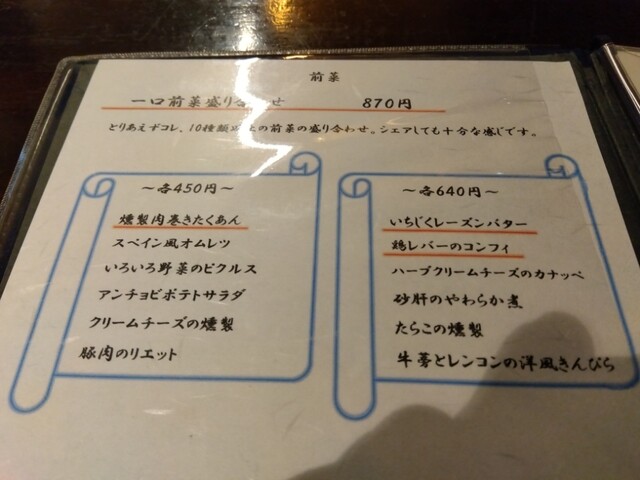 前菜
一口前菜盛り合わせ 870円
とりあえずコレ、10種類以上の前菜の盛り合わせ。シェアしても十分な感じです。
～各450円～
燻製肉巻きたくあん
スペイン風オムレツ
いろいろ野菜のピクルス
アンチョビポテトサラダ
クリームチーズの燻製
豚肉のリエット
～各640円～
いちじくレーズンバター
鶏レバーのコンフィ
ハーブクリームチーズのカナッペ
砂肝のやわらか煮
たらこの燻製
牛蒡とレンコンの洋風きんぴら